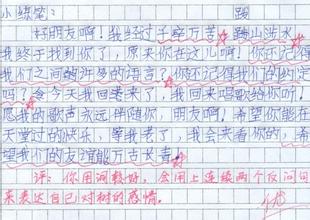 小练笔: 跋
好朋友啊!我经过千辛万苦,跋山涉水
我终于找到你了,原来你在这儿啊!你还记得
我们之间的许多的语言?你还记得我们的约定
吗?食今天我回老来了,我回来唱歌给你听!
愿我的歌声永远伴随你,朋友啊,希望你能在
天堂过的快乐,等我老了,我会来看你的,希
望我们的友谊能万古长青!
评:你用词较好,会用上连续两个反问句
来表达自己对树的感情。
优